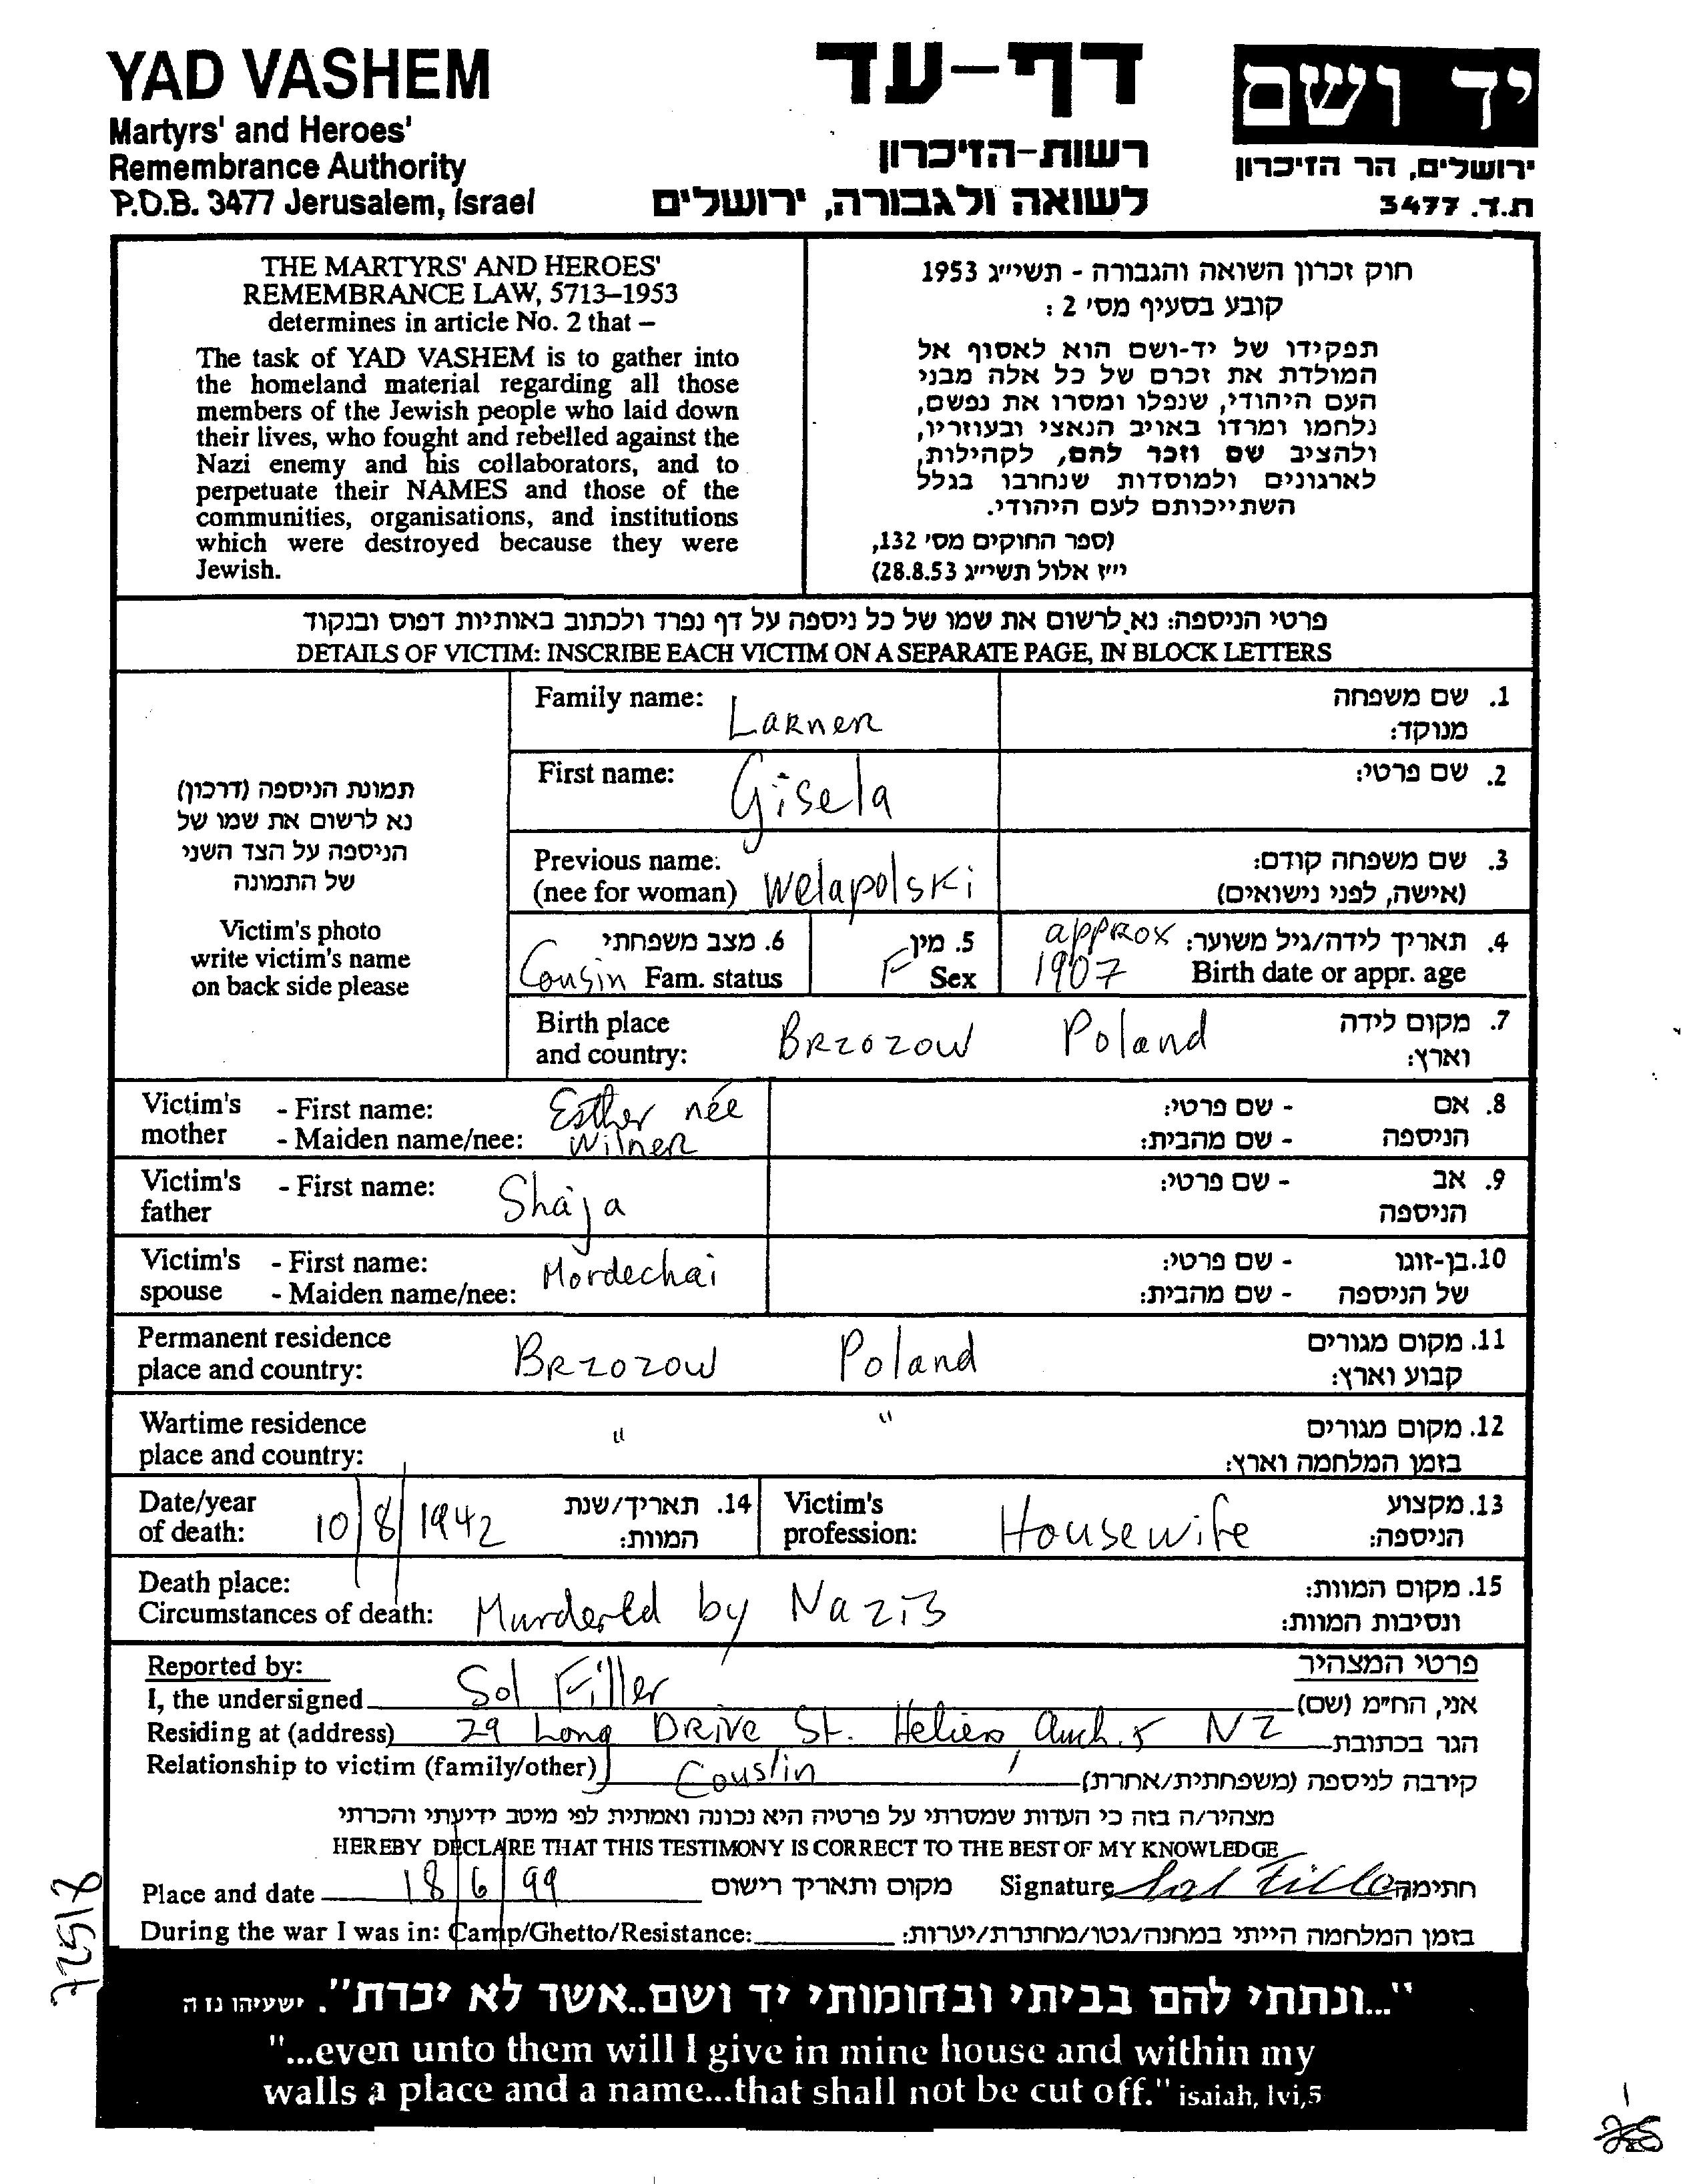 YAD VASHEM
Martyrs' and Heroes'
Remembrance Authority
P.O.B. 3477 Jerusalem, Israel
דף-עד
רשות-הזיכרון
לשואה ולגבורה, ירושלים
יד ושם
ירושלים, הר הזיכרון
ת.ד. 3477
THE MARTYRS' AND HEROES'
REMEMBRANCE LAW, 5713–1953
determines in article No. 2 that –
The task of YAD VASHEM is to gather into
the homeland material regarding all those
members of the Jewish people who laid down
their lives, who fought and rebelled against the
Nazi enemy and his collaborators, and to
perpetuate their NAMES and those of the
communities, organisations, and institutions
which were destroyed because they were
Jewish.
חוק זכרון השואה והגבורה - תשי״ג 1953
קובע בסעיף מס׳ 2 :
תפקידו של יד-ושם הוא לאסוף אל
המולדת את זכרם של כל אלה מבני
העם היהודי, שנפלו ומסרו את נפשם,
נלחמו ומרדו באויב הנאצי ובעוזריו,
ולהציב שם וזכר להם, לקהילות,
לארגונים ולמוסדות שנחרבו בגלל
השתייכותם לעם היהודי.
(ספר החוקים מס׳ 132,
י״ז אלול תשי״ג 28.8.53)
פרטי הניספה: נא לרשום את שמו של כל ניספה על דף נפרד ולכתוב באותיות דפוס ובנקוד
DETAILS OF VICTIM: INSCRIBE EACH VICTIM ON A SEPARATE PAGE, IN BLOCK LETTERS
תמונת הניספה (דרכון)
נא לרשום את שמו של
הניספה על הצד השני
של התמונה
Victim's photo
write victim's name
on back side please
Family name: Larner 1. שם משפחה
מנוקד:
First name: Gisela 2. שם פרטי:
Previous name: 3. שם משפחה קודם:
(nee for woman) Welapolski (אישה, לפני נישואים)
6. מצב משפחתי 5. מין approx 4. תאריך לידה/גיל משוער:
Cousin Fam. status F Sex 1907 Birth date or appr. age
Birth place Brzozow Poland 7. מקום לידה
and country: וארץ:
Victim's - First name: Esther née - שם פרטי: 8. אם
mother - Maiden name/nee: Wilner - שם מהבית: הניספה
Victim's - First name: Shaja - שם פרטי: 9. אב
father הניספה
Victim's - First name: Mordechai - שם פרטי: 10. בן-זוגו
spouse - Maiden name/nee: - שם מהבית: של הניספה
Permanent residence 11. מקום מגורים
place and country: Brzozow Poland קבוע וארץ:
Wartime residence " " 12. מקום מגורים
place and country: בזמן המלחמה וארץ:
Date/year 14. תאריך/שנת Victim's 13. מקצוע
of death: 10/8/1942 המוות: profession: Housewife הניספה:
Death place: 15. מקום המוות:
Circumstances of death: Murdered by Nazis ונסיבות המוות:
Reported by: פרטי המצהיר
I, the undersigned Sol Filler אני, הח״מ (שם)
Residing at (address) 29 Long Drive St. Heliers, Auck. 5 NZ הגר בכתובת
Relationship to victim (family/other) Cousin קירבה לניספה (משפחתית/אחרת)
מצהיר/ה בזה כי העדות שמסרתי על פרטיה היא נכונה ואמתית לפי מיטב ידיעתי והכרתי
HEREBY DECLARE THAT THIS TESTIMONY IS CORRECT TO THE BEST OF MY KNOWLEDGE
Place and date 18/6/99 מקום ותאריך רישום Signature Sol Filler חתימה
During the war I was in: Camp/Ghetto/Resistance: בזמן המלחמה הייתי במחנה/גטו/מחתרת/יערות:
"...ונתתי להם בביתי ובחומותי יד ושם..אשר לא יכרת". ישעיהו נו ה
"...even unto them will I give in mine house and within my
walls a place and a name...that shall not be cut off." isaiah, lvi,5